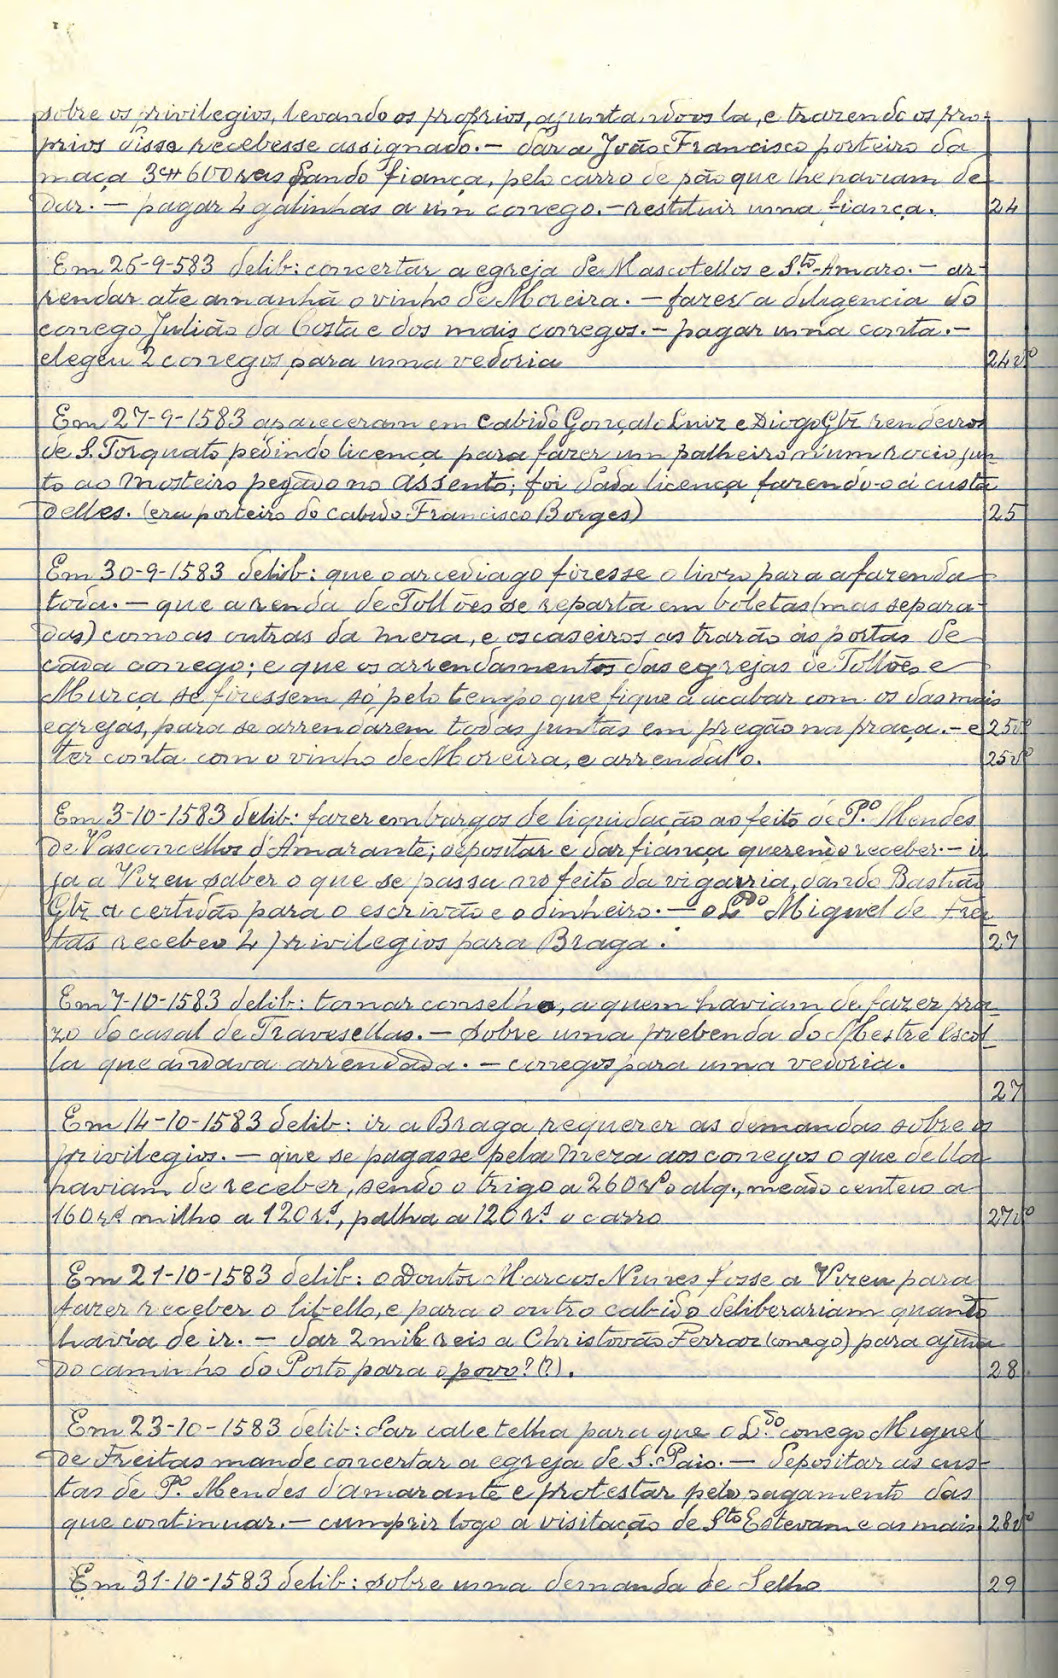 sobre os privilegios, levando os proprios, ajuntandoos la, e trazendo os pro-
prios disse recebesse assignado. — dar a João Francisco porteiro da
maça 3 600 reis dando fiança, pelo carro de pão que lhe haviam de
dar. — pagar 4 galinhas a um conego. — restituir uma fiança. 24
Em 26-9-583 delib: concertar a egreja de Mascotellos e Sto Amaro. — ar-
rendar ate amanhã o vinho de Moreira. — fazer a deligencia do
conego Julião da Costa e dos mais conegos. — pagar uma conta. —
elegeu 2 conegos para uma vedoria 24vº
Em 27-9-1583 apareceram em cabido Gonçalo Luiz e Diogo Glz rendeiros
de S. Torquato pedindo licença para fazer um palheiro n'um rocio jun-
to ao mosteiro pegado no assento; foi dada licença fazendo-o á custa
delles. (era porteiro do cabido Francisco Borges) 25
Em 30-9-1583 delib: que o arcediago fizesse o livro para a fazenda
toda. — que a renda de Tollões se reparta em boletas (mas separa-
das) como as outras da meza, e os caseiros as trarão ás portas de
cada conego; e que os arrendamentos das egrejas de Tollões e
Murça se fizessem só pelo tempo que fique a acabar com os das mais
egrejas, para se arrendarem todas juntas em pregão na praça. — e 25vº
ter conta com o vinho de Moreira, e arrendalo. 25vº
Em 3-10-1583 delib: fazer embargos de liquidação ao feito de Pº Mendes
de Vasconcellos d'Amarante; depositar e dar fiança querendo receber. — ir
já a Vizeu saber o que se passa no feito da vigairia, dando Bastião
Glz a certidão para o escrivão e o dinheiro. — o Ldo Miguel de Frei
tas recebeo 4 privilegios para Braga. 27
Em 7-10-1583 delib: tomar conselho, a quem haviam de fazer pra-
zo do casal de Travesellas. — sobre uma prebenda do Mestre Esco-
la que andava arrendada. — conegos para uma vedoria.
27
Em 14-10-1583 delib: ir a Braga requerer as demandas sobre os
privilegios. — que se pagasse pela meza aos conegos o que della
haviam de receber, sendo o trigo a 260 rs o alq., meado centeio a
160 rs milho a 120 rs, palha a 120 rs o carro 27vº
Em 21-10-1583 delib: o Doutor Marcos Nunes fosse a Vizeu para
fazer receber o libello, e para o outro cabido deliberariam quando
havia de ir. — dar 2 mil reis a Christovão Ferraz (conego) para ajuda
do caminho do Porto para o povo? (?). 28
Em 23-10-1583 delib: dar cal e telha para que o Ldo conego Miguel
de Freitas mande concertar a egreja de S. Paio. — depositar as cus-
tas de Pº Mendes d'amarante e protestar pelo pagamento das
que continuar. — cumprir logo a visitação de Sto Estevam e as mais. 28vº
Em 31-10-1583 delib: sobre uma demanda de Selho 29